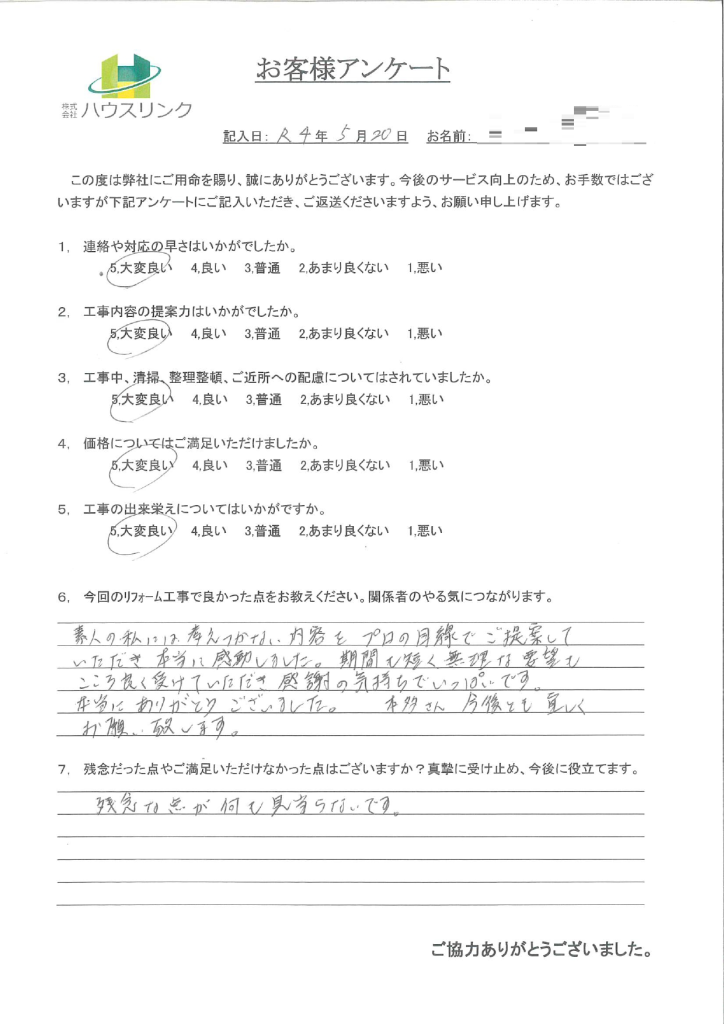 お客様アンケート
株式
会社 ハウスリンク
記入日: R 4 年 5 月 20 日 お名前:
この度は弊社にご用命を賜り、誠にありがとうございます。今後のサービス向上のため、お手数ではござ
いますが下記アンケートにご記入いただき、ご返送くださいますよう、お願い申し上げます。
1, 連絡や対応の早さはいかがでしたか。
5,大変良い 4,良い 3,普通 2,あまり良くない 1,悪い
2, 工事内容の提案力はいかがでしたか。
5,大変良い 4,良い 3,普通 2,あまり良くない 1,悪い
3, 工事中、清掃、整理整頓、ご近所への配慮についてはされていましたか。
5,大変良い 4,良い 3,普通 2,あまり良くない 1,悪い
4, 価格についてはご満足いただけましたか。
5,大変良い 4,良い 3,普通 2,あまり良くない 1,悪い
5, 工事の出来栄えについてはいかがですか。
5,大変良い 4,良い 3,普通 2,あまり良くない 1,悪い
6, 今回のリフォーム工事で良かった点をお教えください。関係者のやる気につながります。
素人の私には考えつかない内容をプロの目線でご提案して
いただき本当に感動しました。期間も短く無理な要望も
こころ良く受けていただき感謝の気持ちでいっぱいです。
本当にありがとうございました。 本多さん今後とも宜しく
お願い致します。
7, 残念だった点やご満足いただけなかった点はございますか？真摯に受け止め、今後に役立てます。
残念な点が何も見当らないです。
ご協力ありがとうございました。